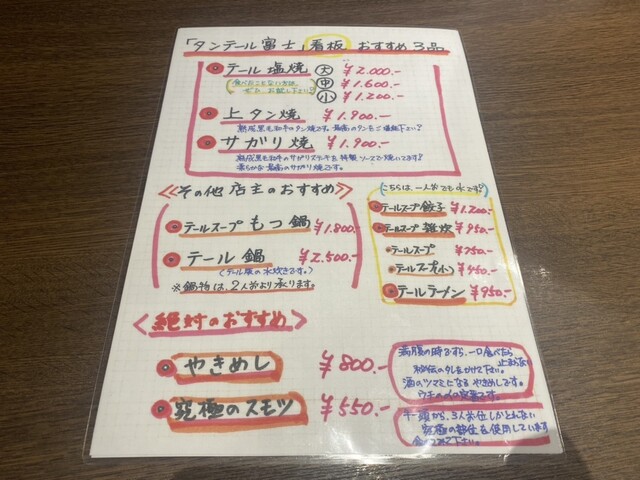 「タンテール富士」看板 おすすめ3品
テール塩焼 大 ¥2.000.-
中 ¥1.600.-
小 ¥1.200.-
上タン焼 ¥1.900.-
サガリ焼 ¥1.900.-
柔らかな最高のサガリ焼です。
≪その他店主のおすすめ≫
テールスープもつ鍋 ¥1.800.-
テール鍋 ¥2.500.-
(テール塩の水炊きです。)
※鍋物は、2人前より承ります。
(こちらは、一人前でもOKです!)
テールスープ餃子 ¥1.200.-
テールスープ雑炊 ¥950.-
テールスープ ¥750.-
テールスープ(小) ¥450.-
テールラーメン ¥950.-
<絶対のおすすめ>
やきめし ¥800.-
満腹の時ですら、一口食べたら
止まらない
秘伝のタレをかけて下さい。
酒のツマミになるやきめしです。
ウチの〆の定番です。
究極のスモツ ¥550.-
牛一頭から、3人前位しかとれない
究極の部位を使用しています
食べてみて下さい。